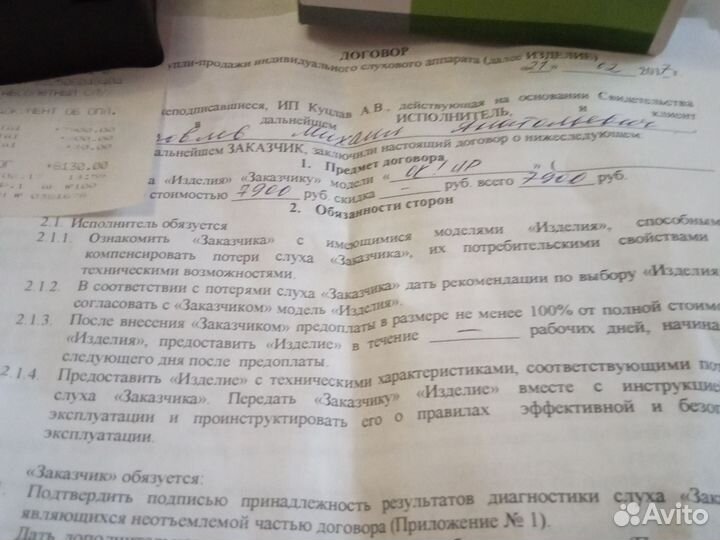 ДОГОВОР
купли-продажи индивидуального слухового аппарата (далее ИЗДЕЛИЕ)
«21» 02 2017 г.
ДОКУМЕНТ ОБ ОПЛ.
*7900.00
*6130.00
ИП Куцлав А.В. действующая на основании Свидетельства
в дальнейшем ИСПОЛНИТЕЛЬ, и клиент
Михаил Анатольевич
дальнейшем ЗАКАЗЧИК, заключили настоящий договор о нижеследующем:
1. Предмет договора.
«Изделия» «Заказчику» модели «
стоимостью 7900 руб. скидка – руб. всего 7900 руб.
2. Обязанности сторон
2.1. Исполнитель обязуется
2.1.1. Ознакомить «Заказчика» с имеющимися моделями «Изделия», способным
компенсировать потери слуха «Заказчика», их потребительскими свойствами
техническими возможностями.
2.1.2. В соответствии с потерями слуха «Заказчика» дать рекомендации по выбору «Изделия
согласовать с «Заказчиком» модель «Изделия».
2.1.3. После внесения «Заказчиком» предоплаты в размере не менее 100% от полной стоимо
«Изделия», предоставить «Изделие» в течение — рабочих дней, начина
следующего дня после предоплаты.
2.1.4. Предоставить «Изделие» с техническими характеристиками, соответствующими пот
слуха «Заказчика». Передать «Заказчику» «Изделие» вместе с инструкцие
эксплуатации и проинструктировать его о правилах эффективной и безоп
эксплуатации.
«Заказчик» обязуется:
Подтвердить подписью принадлежность результатов диагностики слуха «Зака
являющихся неотъемлемой частью договора (Приложение № 1).
Avito